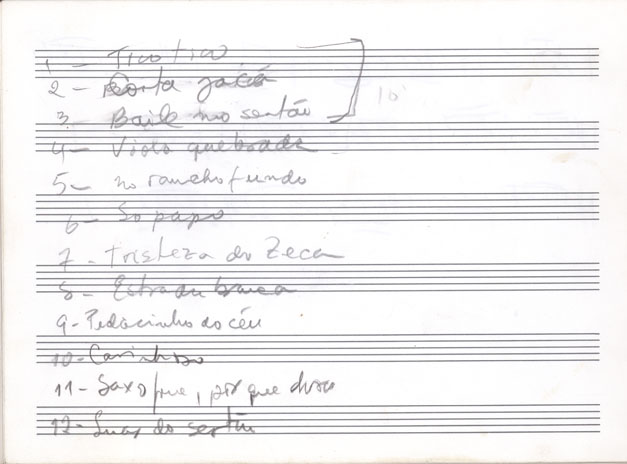 1 - Tico tico
2 - Corta jaca
3 - Baile no sertão
10'
4 - Viola quebrada
5 - no rancho fundo
6 - So papo
7 - Tristeza do Zeca
8 - Estrada branca
9 - Pedacinho do céu
10 - Carinhoso
11 - Saxofone, por que choras
12 - Luar do sertão